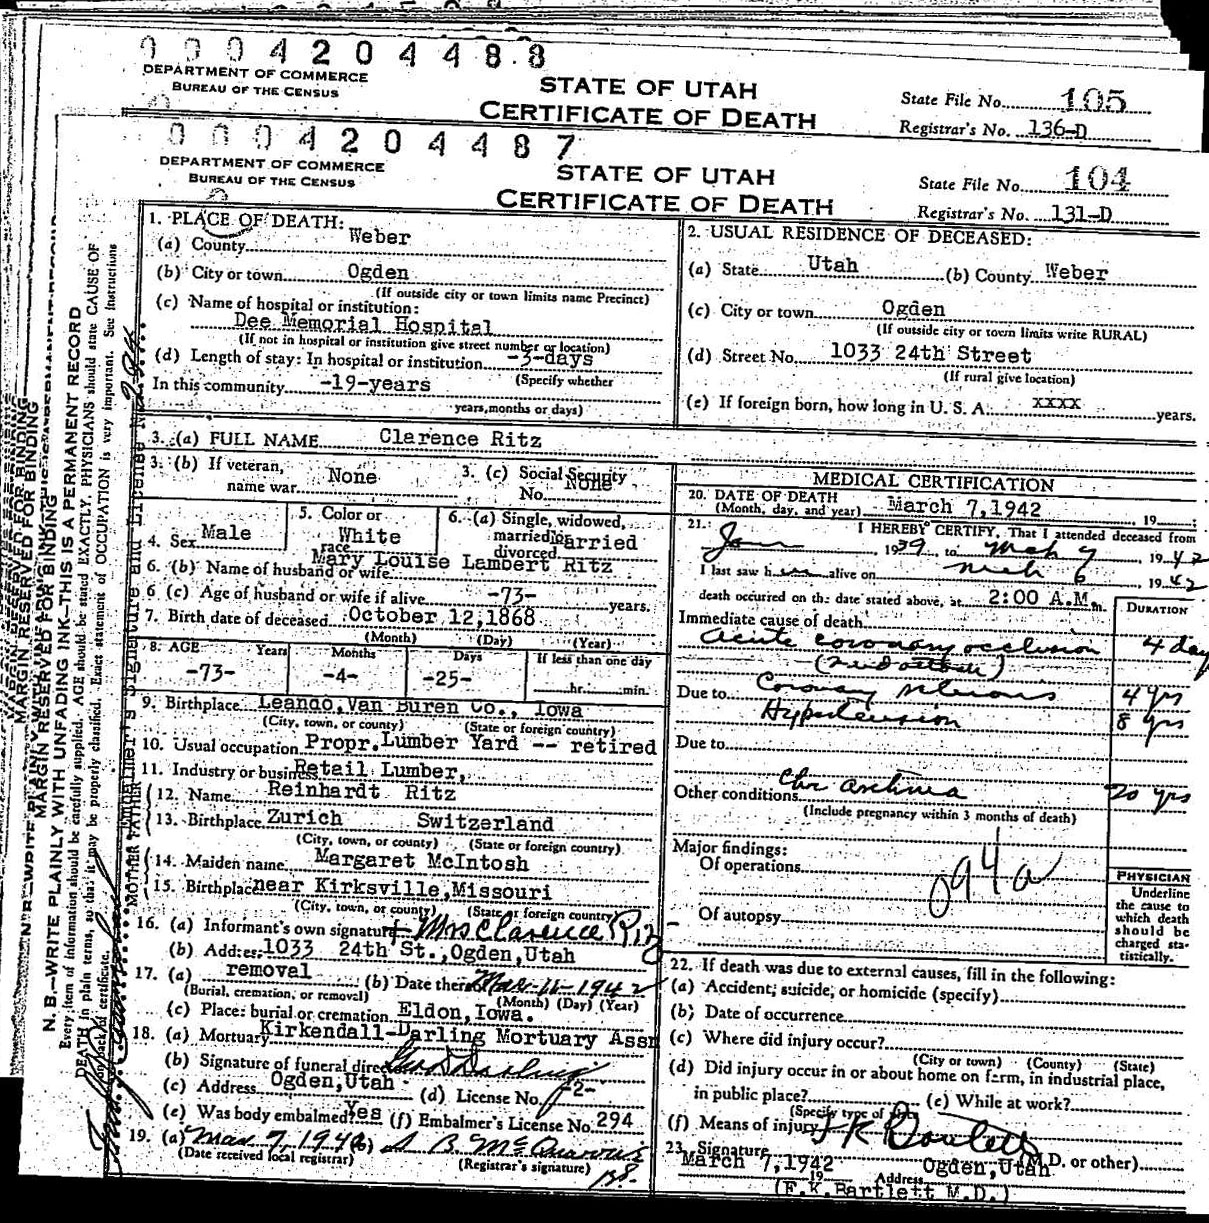 0004204488
DEPARTMENT OF COMMERCE
BUREAU OF THE CENSUS
STATE OF UTAH
CERTIFICATE OF DEATH
State File No. 105
Registrar's No. 136-D
0004204487
DEPARTMENT OF COMMERCE
BUREAU OF THE CENSUS
STATE OF UTAH
CERTIFICATE OF DEATH
State File No. 104
Registrar's No. 131-D
1. PLACE OF DEATH:
(a) County Weber
(b) City or town Ogden
(If outside city or town limits name Precinct)
(c) Name of hospital or institution:
Dee Memorial Hospital
(If not in hospital or institution give street number or location)
(d) Length of stay: In hospital or institution -3-days
(Specify whether
In this community -19-years
years, months or days)
2. USUAL RESIDENCE OF DECEASED:
(a) State Utah (b) County Weber
(c) City or town Ogden
(If outside city or town limits write RURAL)
(d) Street No. 1033 24th Street
(If rural give location)
(e) If foreign born, how long in U. S. A. xxxx years.
3. (a) FULL NAME Clarence Ritz
3. (b) If veteran, name war None
3. (c) Social Security No. None
4. Sex Male
5. Color or race White
6. (a) Single, widowed, married, or divorced Married
6. (b) Name of husband or wife Mary Louise Lambert Ritz
6 (c) Age of husband or wife if alive -73- years.
7. Birth date of deceased October 12,1868
(Month) (Day) (Year)
8. AGE Years Months Days If less than one day
-73- -4- -25- hr. min.
9. Birthplace Leando, Van Buren Co., Iowa
(City, town, or county) (State or foreign country)
10. Usual occupation Propr. Lumber Yard -- retired
11. Industry or business Retail Lumber,
FATHER
12. Name Reinhardt Ritz
13. Birthplace Zurich Switzerland
(City, town, or county) (State or foreign country)
MOTHER
14. Maiden name Margaret McIntosh
15. Birthplace near Kirksville, Missouri
(City, town, or county) (State or foreign country)
16. (a) Informant's own signature Mrs Clarence Ritz
(b) Address 1033 24th St., Ogden, Utah
17. (a) removal (b) Date thereof Mar-11-1942
(Burial, cremation, or removal) (Month) (Day) (Year)
(c) Place: burial or cremation Eldon, Iowa.
18. (a) Mortuary Kirkendall-Darling Mortuary Assn
(b) Signature of funeral director
(c) Address Ogden, Utah (d) License No. -2-
(e) Was body embalmed? Yes (f) Embalmer's License No. 294
19. (a) Mar 7, 1942 (b)
(Date received local registrar) (Registrar's signature)
MEDICAL CERTIFICATION
20. DATE OF DEATH
(Month, day, and year) March 7,1942 19
21. I HEREBY CERTIFY, That I attended deceased from
Jan 1939 to Mch 7 1942
I last saw him alive on Mch 6 1942
death occurred on the date stated above, at 2:00 A.M. m.
DURATION
Immediate cause of death
Acute coronary occlusion 4 day
Due to Coronary sclerosis 4 yrs
Hypertension 8 yrs
Due to
Other conditions Chr asthma 20 yrs
(Include pregnancy within 3 months of death)
Major findings:
Of operations
094a
Of autopsy
PHYSICIAN
Underline
the cause to
which death
should be
charged sta-
tistically.
22. If death was due to external causes, fill in the following:
(a) Accident, suicide, or homicide (specify)
(b) Date of occurrence
(c) Where did injury occur?
(City or town) (County) (State)
(d) Did injury occur in or about home on farm, in industrial place,
in public place? (e) While at work?
(Specify type of
(f) Means of injury
23. Signature (M.D. or other)
March 7,1942 19 Address Ogden, Utah
(F.K. Bartlett M.D.)
MARGIN RESERVED FOR BINDING
N. B.—WRITE PLAINLY WITH UNFADING INK—THIS IS A PERMANENT RECORD
Every item of information should be carefully supplied. AGE should be stated EXACTLY. PHYSICIANS should state CAUSE OF
DEATH in plain terms, so that it may be properly classified. Exact statement of OCCUPATION is very important. See Instructions
on back of certificate.
Embalmer's Signature and License No. 294